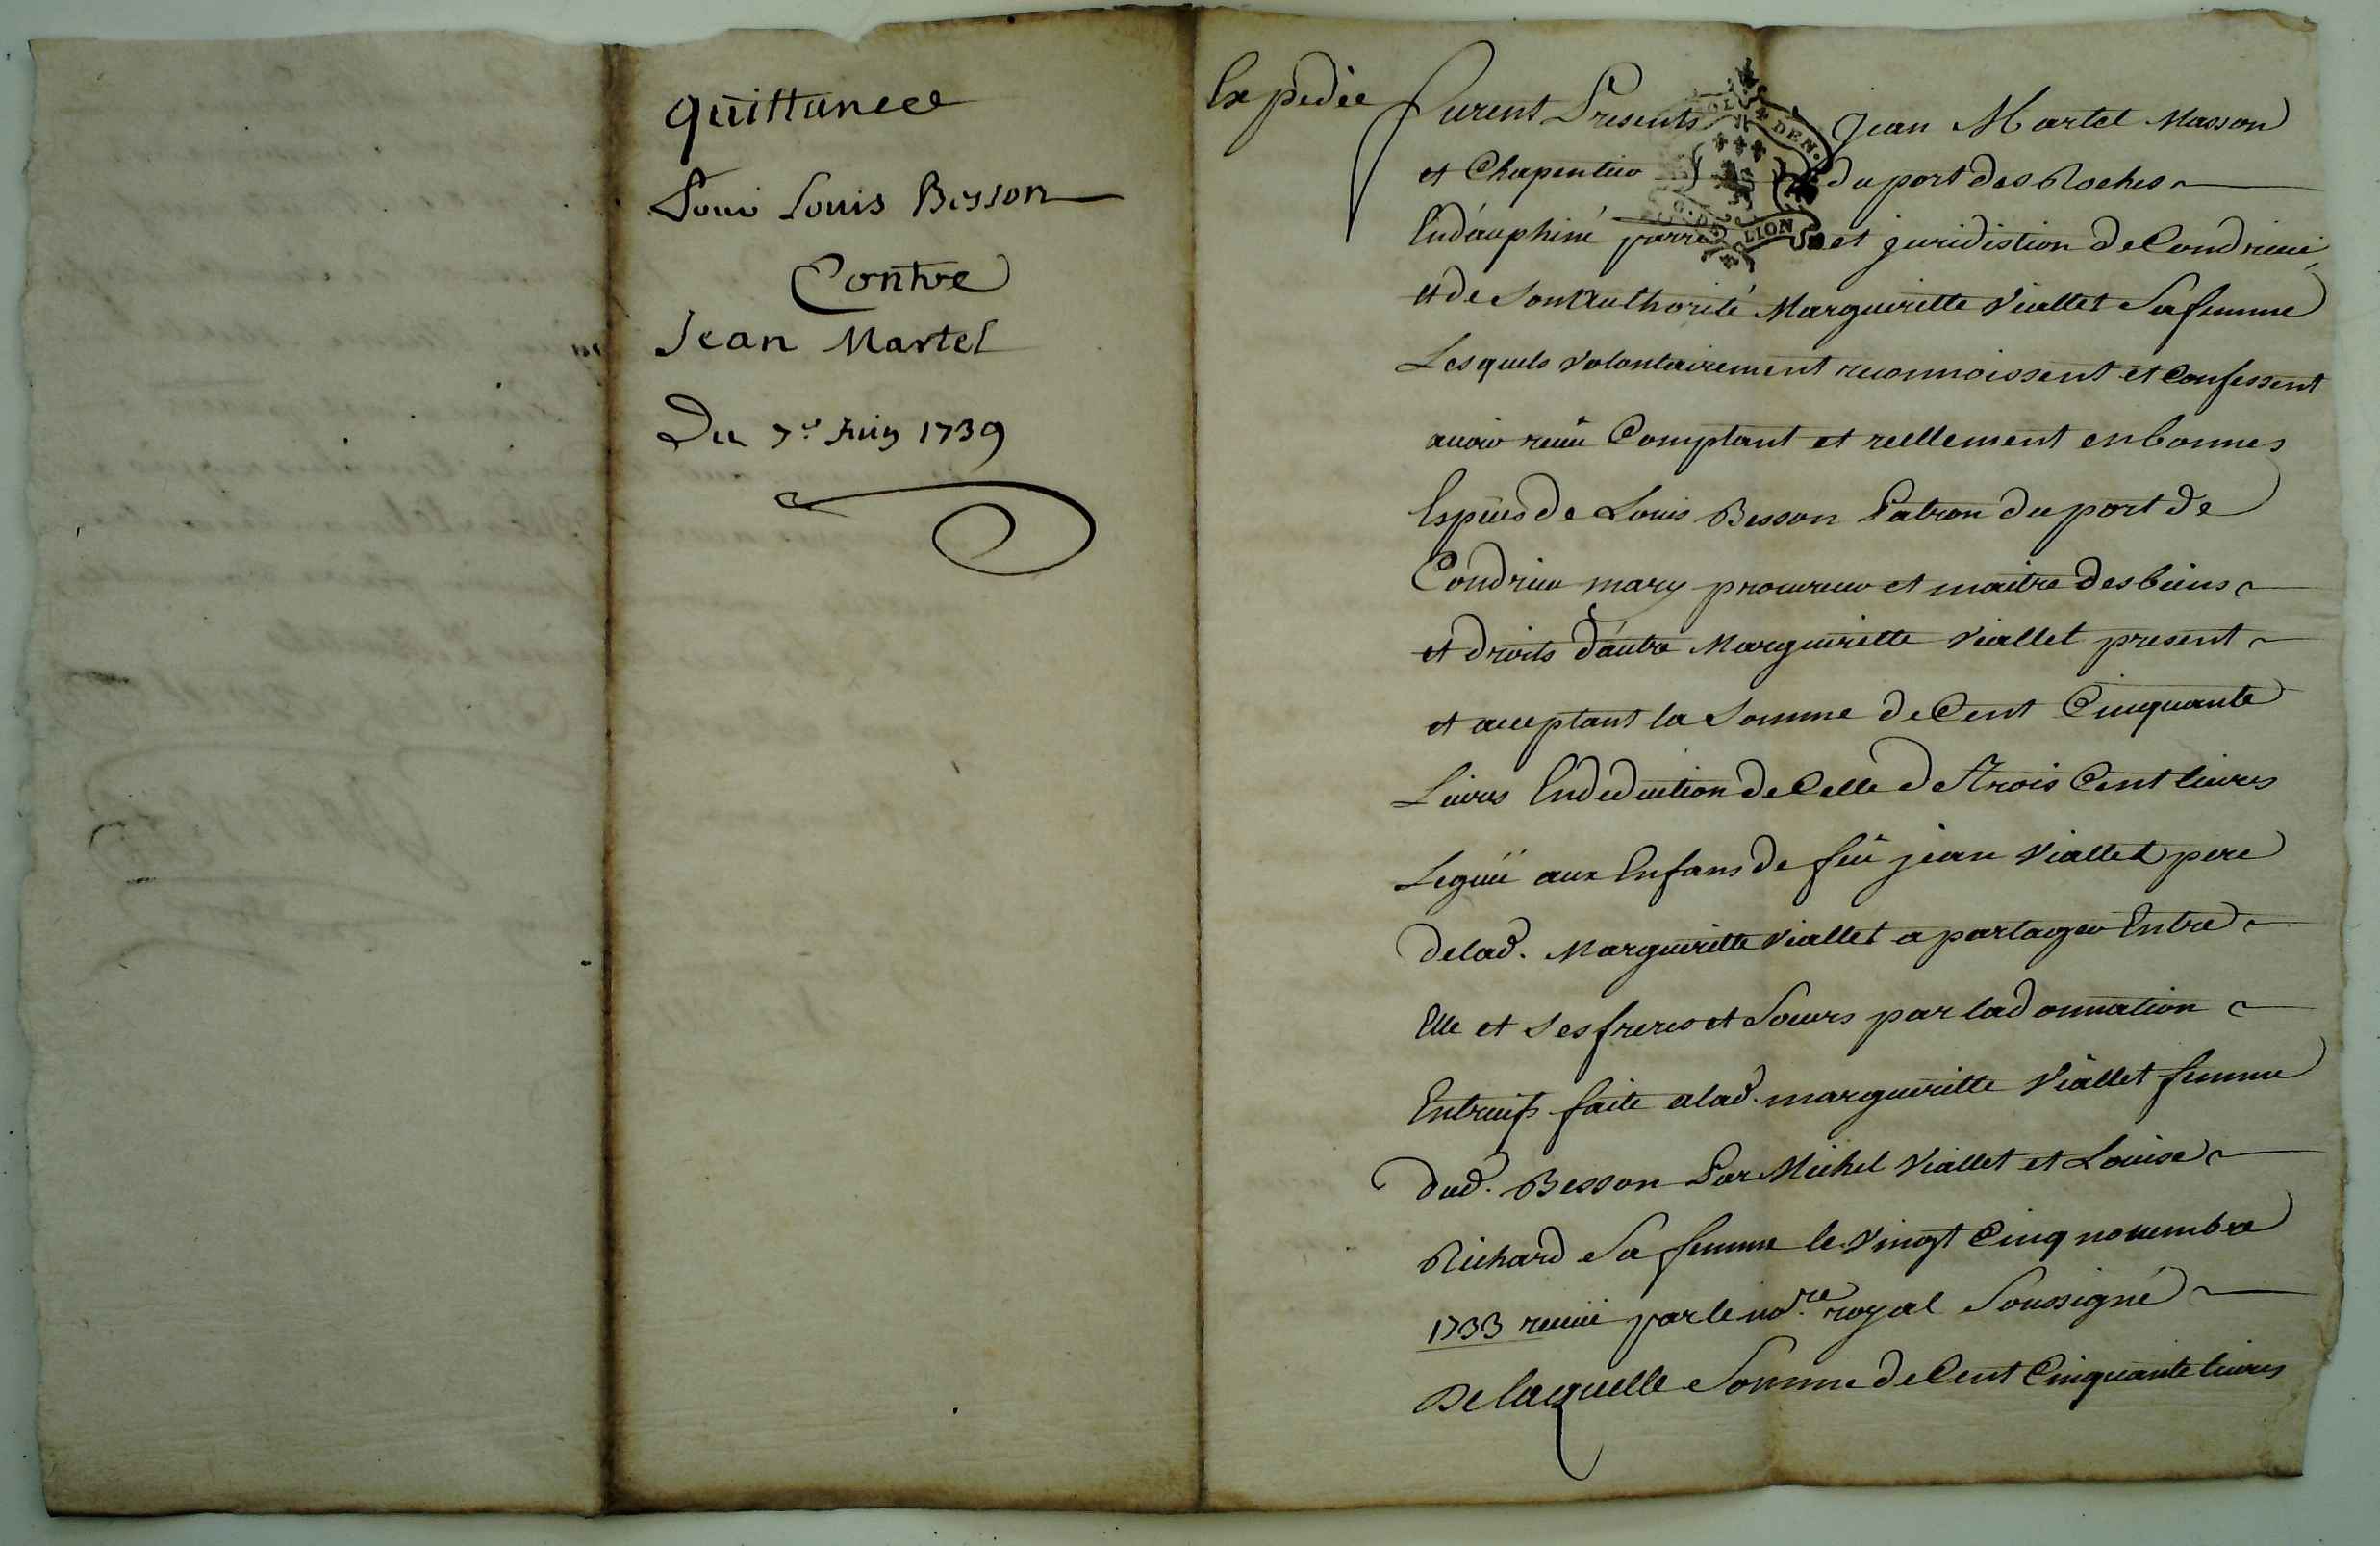 quittance
Pour Louis Besson
Contre
Jean Martel
Du 7e Juin 1739
Expediée
furent Presents Jean Martel Masson
et Chapentier du port des Roches
En dáuphiné parre et juridistion de Condrieu
et de Son Authorité Margueritte Viallet Sa femme
Lesquels volontairement reconnoissent et Confessent
avoir reçu Comptant et reellement en bonnes
Especes de Louis Besson Patron du port de
Condrieu mary procureur et maitre des biens
et droits d'autre Margueritte Viallet present
et acceptant la Somme de Cent Cinquante
Livres En deduction de Celle de Trois Cent livres
Legué aux Enfans de feu jean Viallet pere
de lad. Margueritte Viallet a partager Entre
Elle et Ses freres et Soeurs par la donnation
Entreuifs faite a lad. margueritte Viallet femme
dud. Besson Par Michel Viallet et Louise
Richard Sa femme le Vingt Cinq nouembre
1733 receue par le nore royal Soussigné
De laquelle Somme de Cent Cinquante livres
DEN.
LION